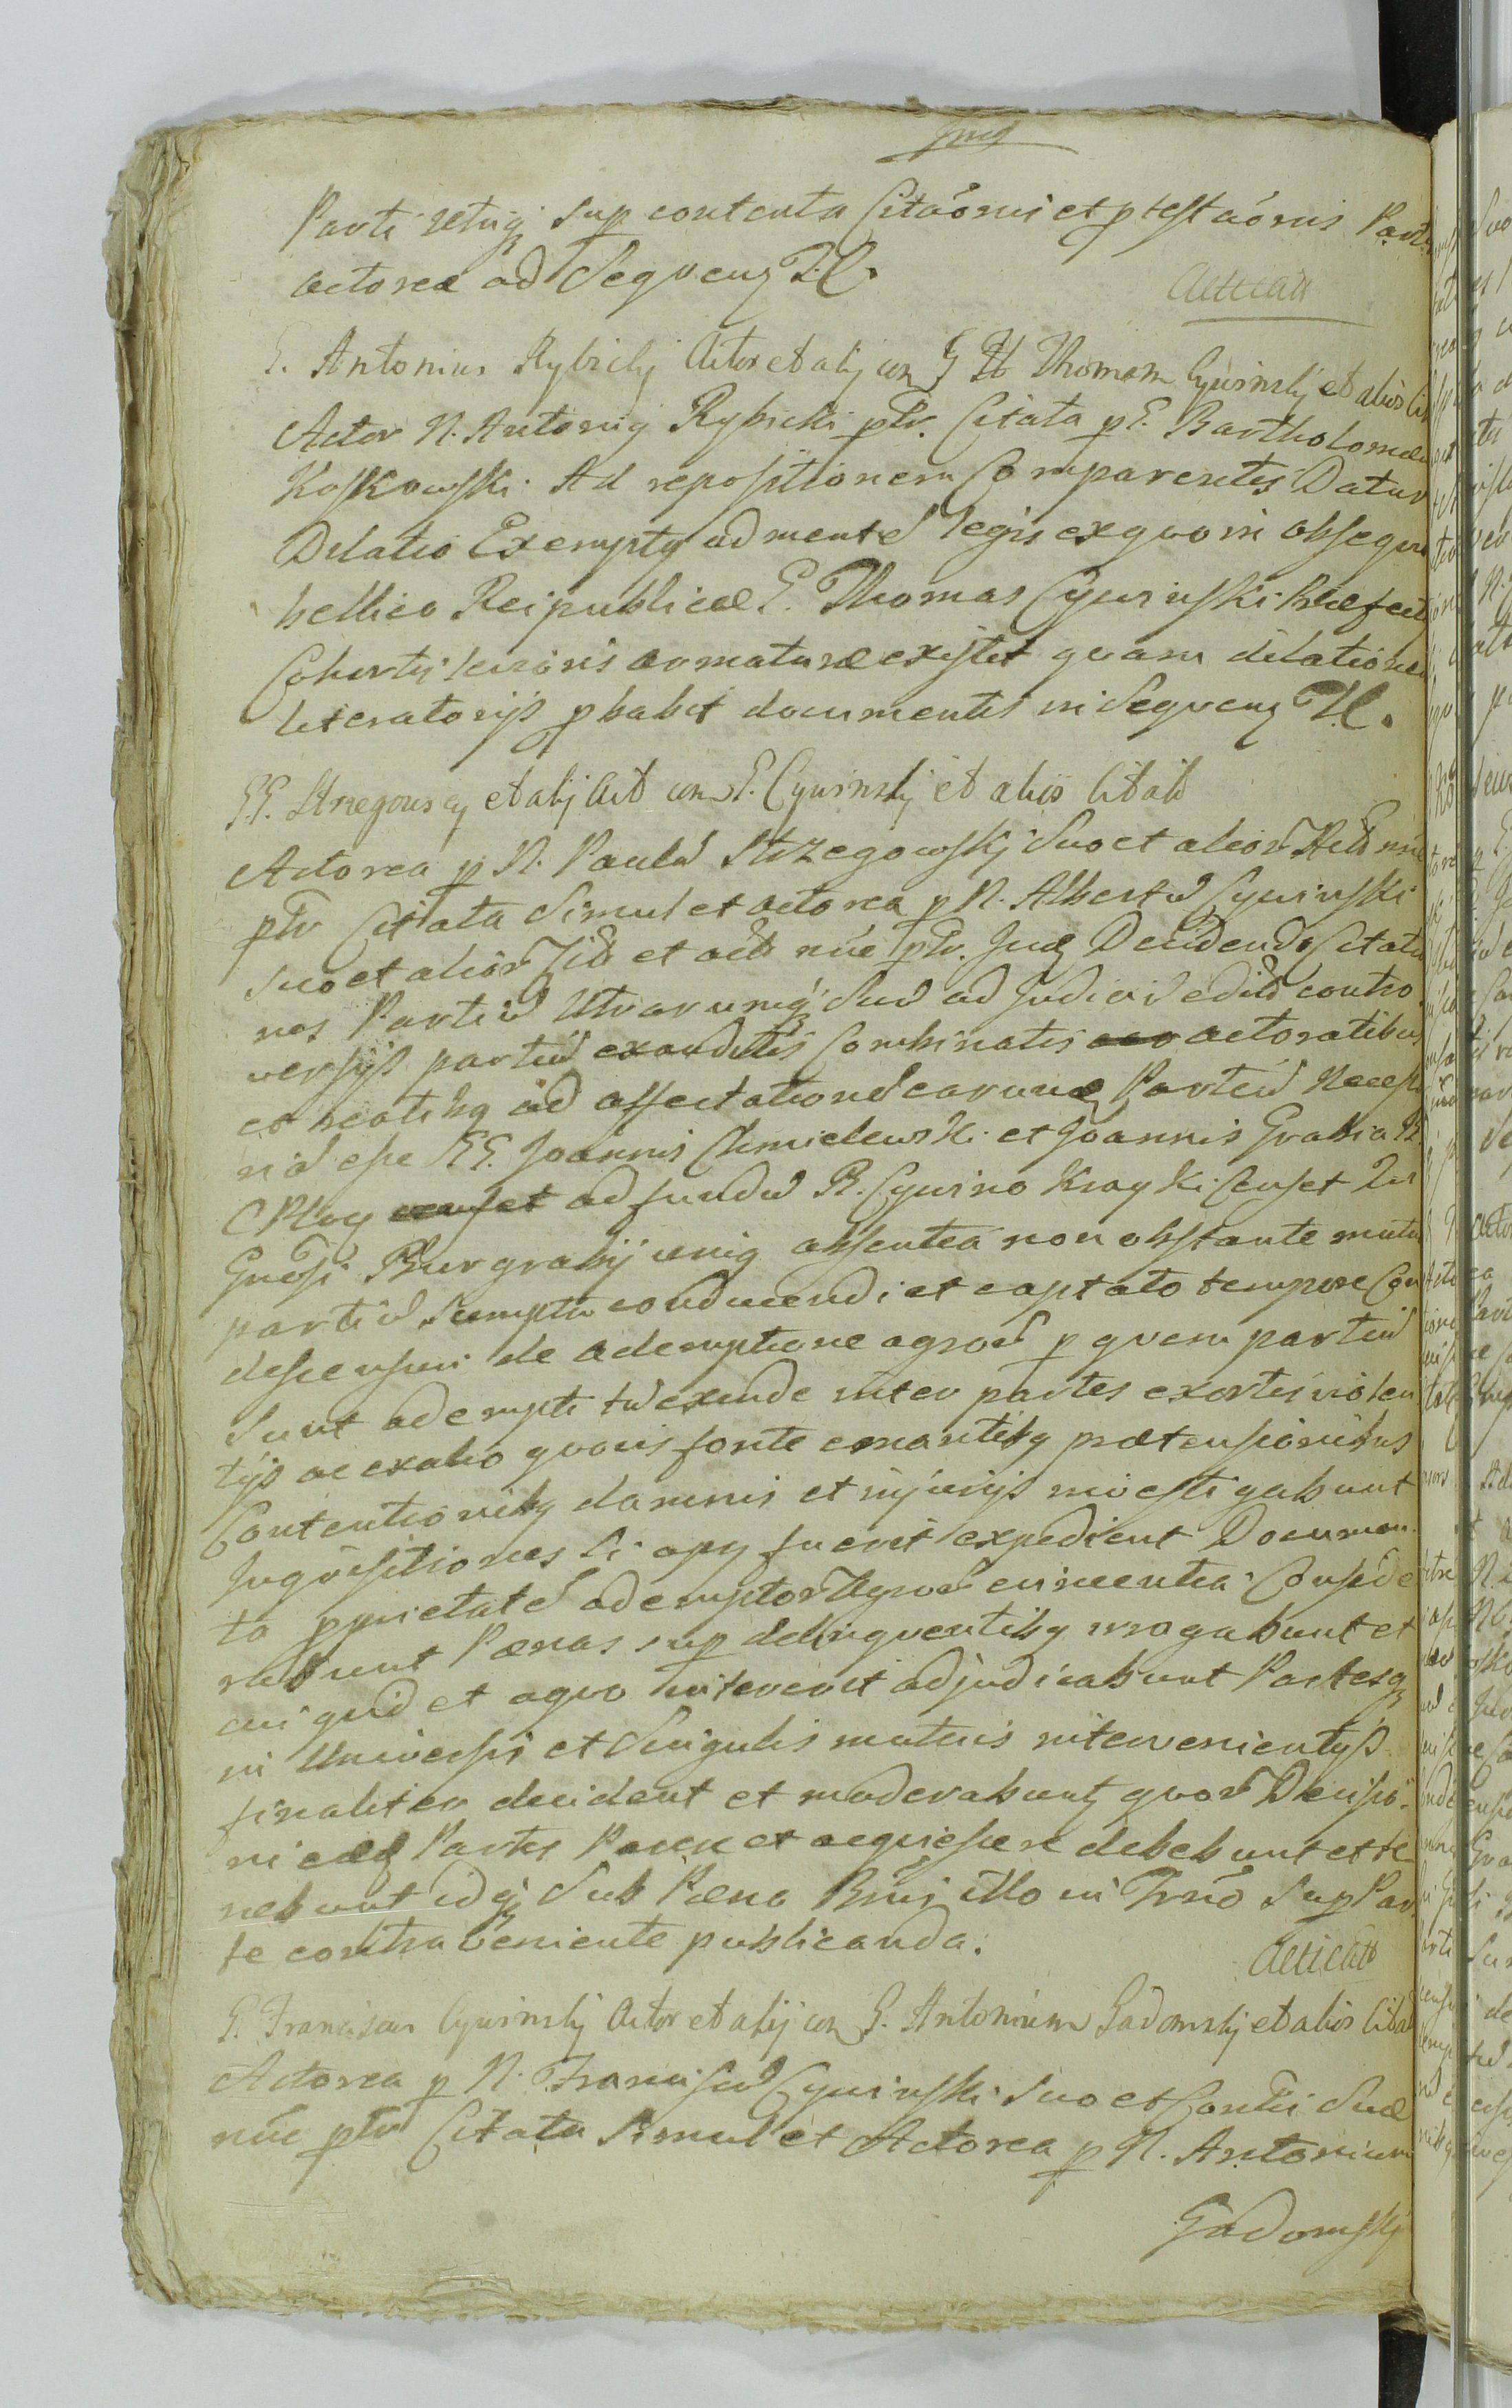 Parti retinq sup contenta Citaóni et ptestaónis Part
actorea ad Sequenz T.C.
Atticatt
G. Antonius Rybickj Actor et alij con G H Thomam Cywinskj et alios Cit
Actor N. Antoniq Rybicki ptr. Citata p G. Bartholomæu
Koskowski. Ad repositionem Comparentis Datur
Dilatio Exempty ad mente legis ex quo in obsequio
bellico Reipublicæ G. Thomas Cywinski Præfect
Cohorty levioris armaturæ existit quam dilatione
literatoryis pbabit documentis in Sequenz T.C.
G.G. Strzegowscy et alij Act con G. Cywinskj et alios Citatt
Actorea p N. Paulu Strzegowskj Suo et alior Actt nne
ptr Citata Simul et actorea p N. Albertu Cywinski
suo et alior Citt et actt nne ptr. Judz Decidendo Citatio
nes Partiu Utrarumq Sua ad Judiciu editt contro
versijs partiu exauditis Combinatis actoratibus
et reatibq ad affectatione earumdz Partiu Necess
riu esse GG. Joannis Chmielewski et Joannis Grabia B.
C Ploc censet ad fundu R. Cywino Krayki Censet Lit
Gnosi Burgrabij uniq absentia non obstante mutuo
partiu Sumptu conducendi et captato tempore Con
descensuri de ademptione agrou p quem partiu
Sunt adempti tu exinde inter partes exortis violen
tijs ac ex alio quovis fonte emanatibq prætensionibus
Contentionibq damnis et injuriis investigabunt
Inquisitiones Si opq fuerit expedient Documen
ta pprietate ademptor Agrou evincentia Conside
rabunt Pænas sup delinquentibq irrogabunt et
cui quid et a quo intererit adjudicabunt Partesq
in Universis et Singulis materis intervenientijs
finaliter decident et moderabunt quor Decisio
ni eædz Partes Parere et acquiescere debebunt et te
nebunt idq Sub Pæna Bnis illo in Trno Sup Par
te contraveniente publicanda.
Atticatt
G. Franciscus Cywinskj Actor et alij con G. Antonium Gadomskj et alios Citat
Actorea p N. Franciscu Cywinski Suo et Conthi Suæ
nne ptr Citata Simul et Actorea p N. Antonium
Gadomskj